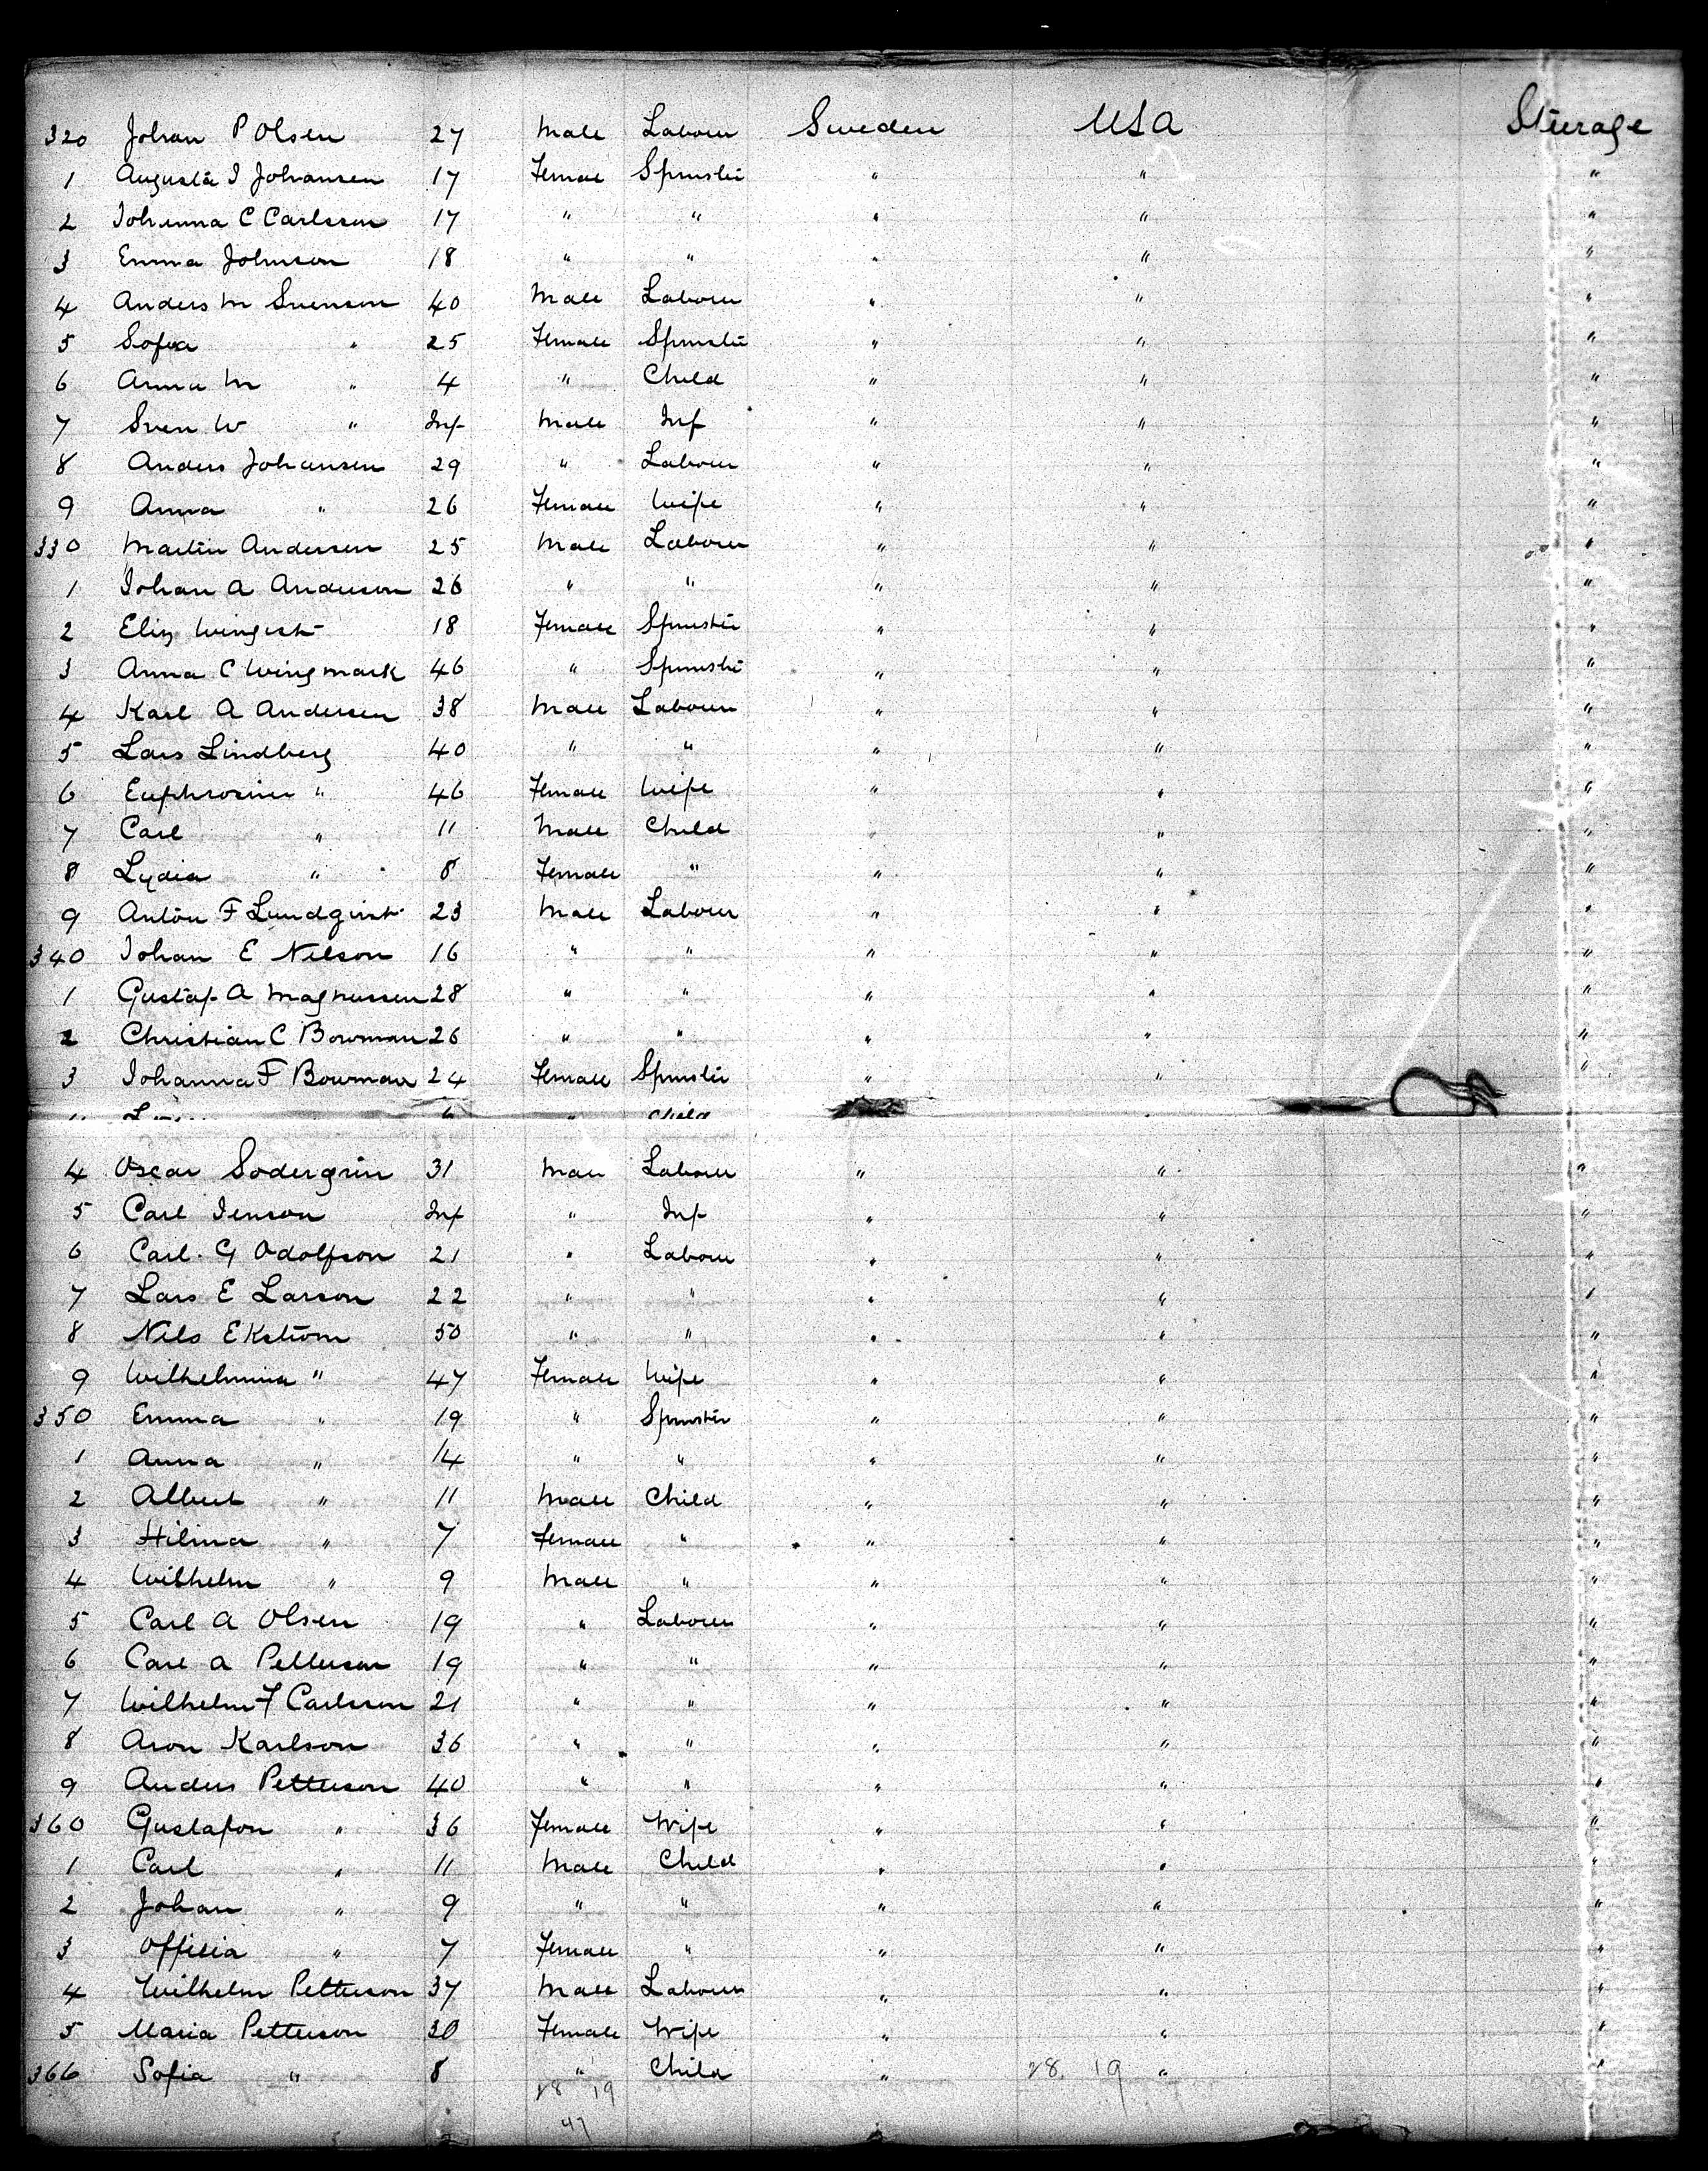 320 Johan P Olsen 27 Male Labourer Sweden USA Steerage
1 Augusta I Johansen 17 Female Spinster " " "
2 Johanna C Carlsson 17 " " " " "
3 Emma Johnson 18 " " " " "
4 Anders M Svenson 40 Male Labourer " " "
5 Sofia " 25 Female Spinster " " "
6 Anna M " 4 " Child " " "
7 Sven W " Inf Male Inf " " "
8 Anders Johansen 29 " Labourer " " "
9 Anna " 26 Female Wife " " "
330 Martin Andersen 25 Male Labourer " " "
1 Johan A Anderson 26 " " " " "
2 Eliz Wingist 18 Female Spinster " " "
3 Anna C Wingmark 46 " Spinster " " "
4 Karl A Andersen 38 Male Labourer " " "
5 Lars Lindberg 40 " " " " "
6 Euphrosine " 46 Female Wife " " "
7 Carl " 11 Male Child " " "
8 Lydia " 8 Female " " " "
9 Anton F Lundqvist 23 Male Labourer " " "
340 Johan E Nilson 16 " " " " "
1 Gustaf A Magnussen 28 " " " " "
2 Christian C Bowman 26 " " " " "
3 Johanna F Bowman 24 Female Spinster " " "
6 " Child "
4 Oscar Sodergrin 31 Male Labourer " " "
5 Carl Jenson Inf " Inf " " "
6 Carl G Adolfson 21 " Labourer " " "
7 Lars E Larson 22 " " " " "
8 Nils Ekstrom 50 " " " " "
9 Wilhelmina " 47 Female Wife " " "
350 Emma " 19 " Spinster " " "
1 Anna " 14 " " " " "
2 Albert " 11 Male Child " " "
3 Hilma " 7 Female " " " "
4 Wilhelm " 9 Male " " " "
5 Carl A Olsen 19 " Labourer " " "
6 Carl A Petterson 19 " " " " "
7 Wilhelm F Carlsson 21 " " " " "
8 Aron Karlson 36 " " " " "
9 Anders Petterson 40 " " " " "
360 Gustafon " 36 Female Wife " " "
1 Carl " 11 Male Child " " "
2 Johan " 9 " " " " "
3 Offilia " 7 Female " " " "
4 Wilhelm Petterson 37 Male Labourer " " "
5 Maria Petterson 30 Female Wife " " "
366 Sofia " 8 " Child " 28 19 " "
28 19
47